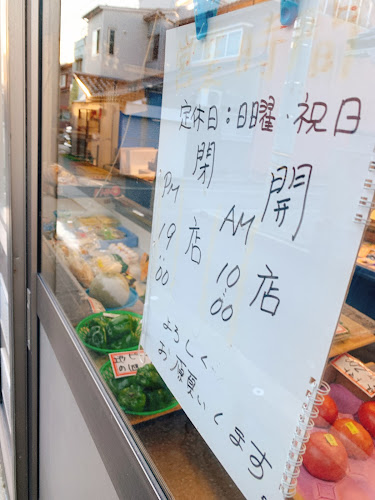 定休日:日曜・祝日
開店
AM10:00
閉店
PM19:00
よろしく
お願いします